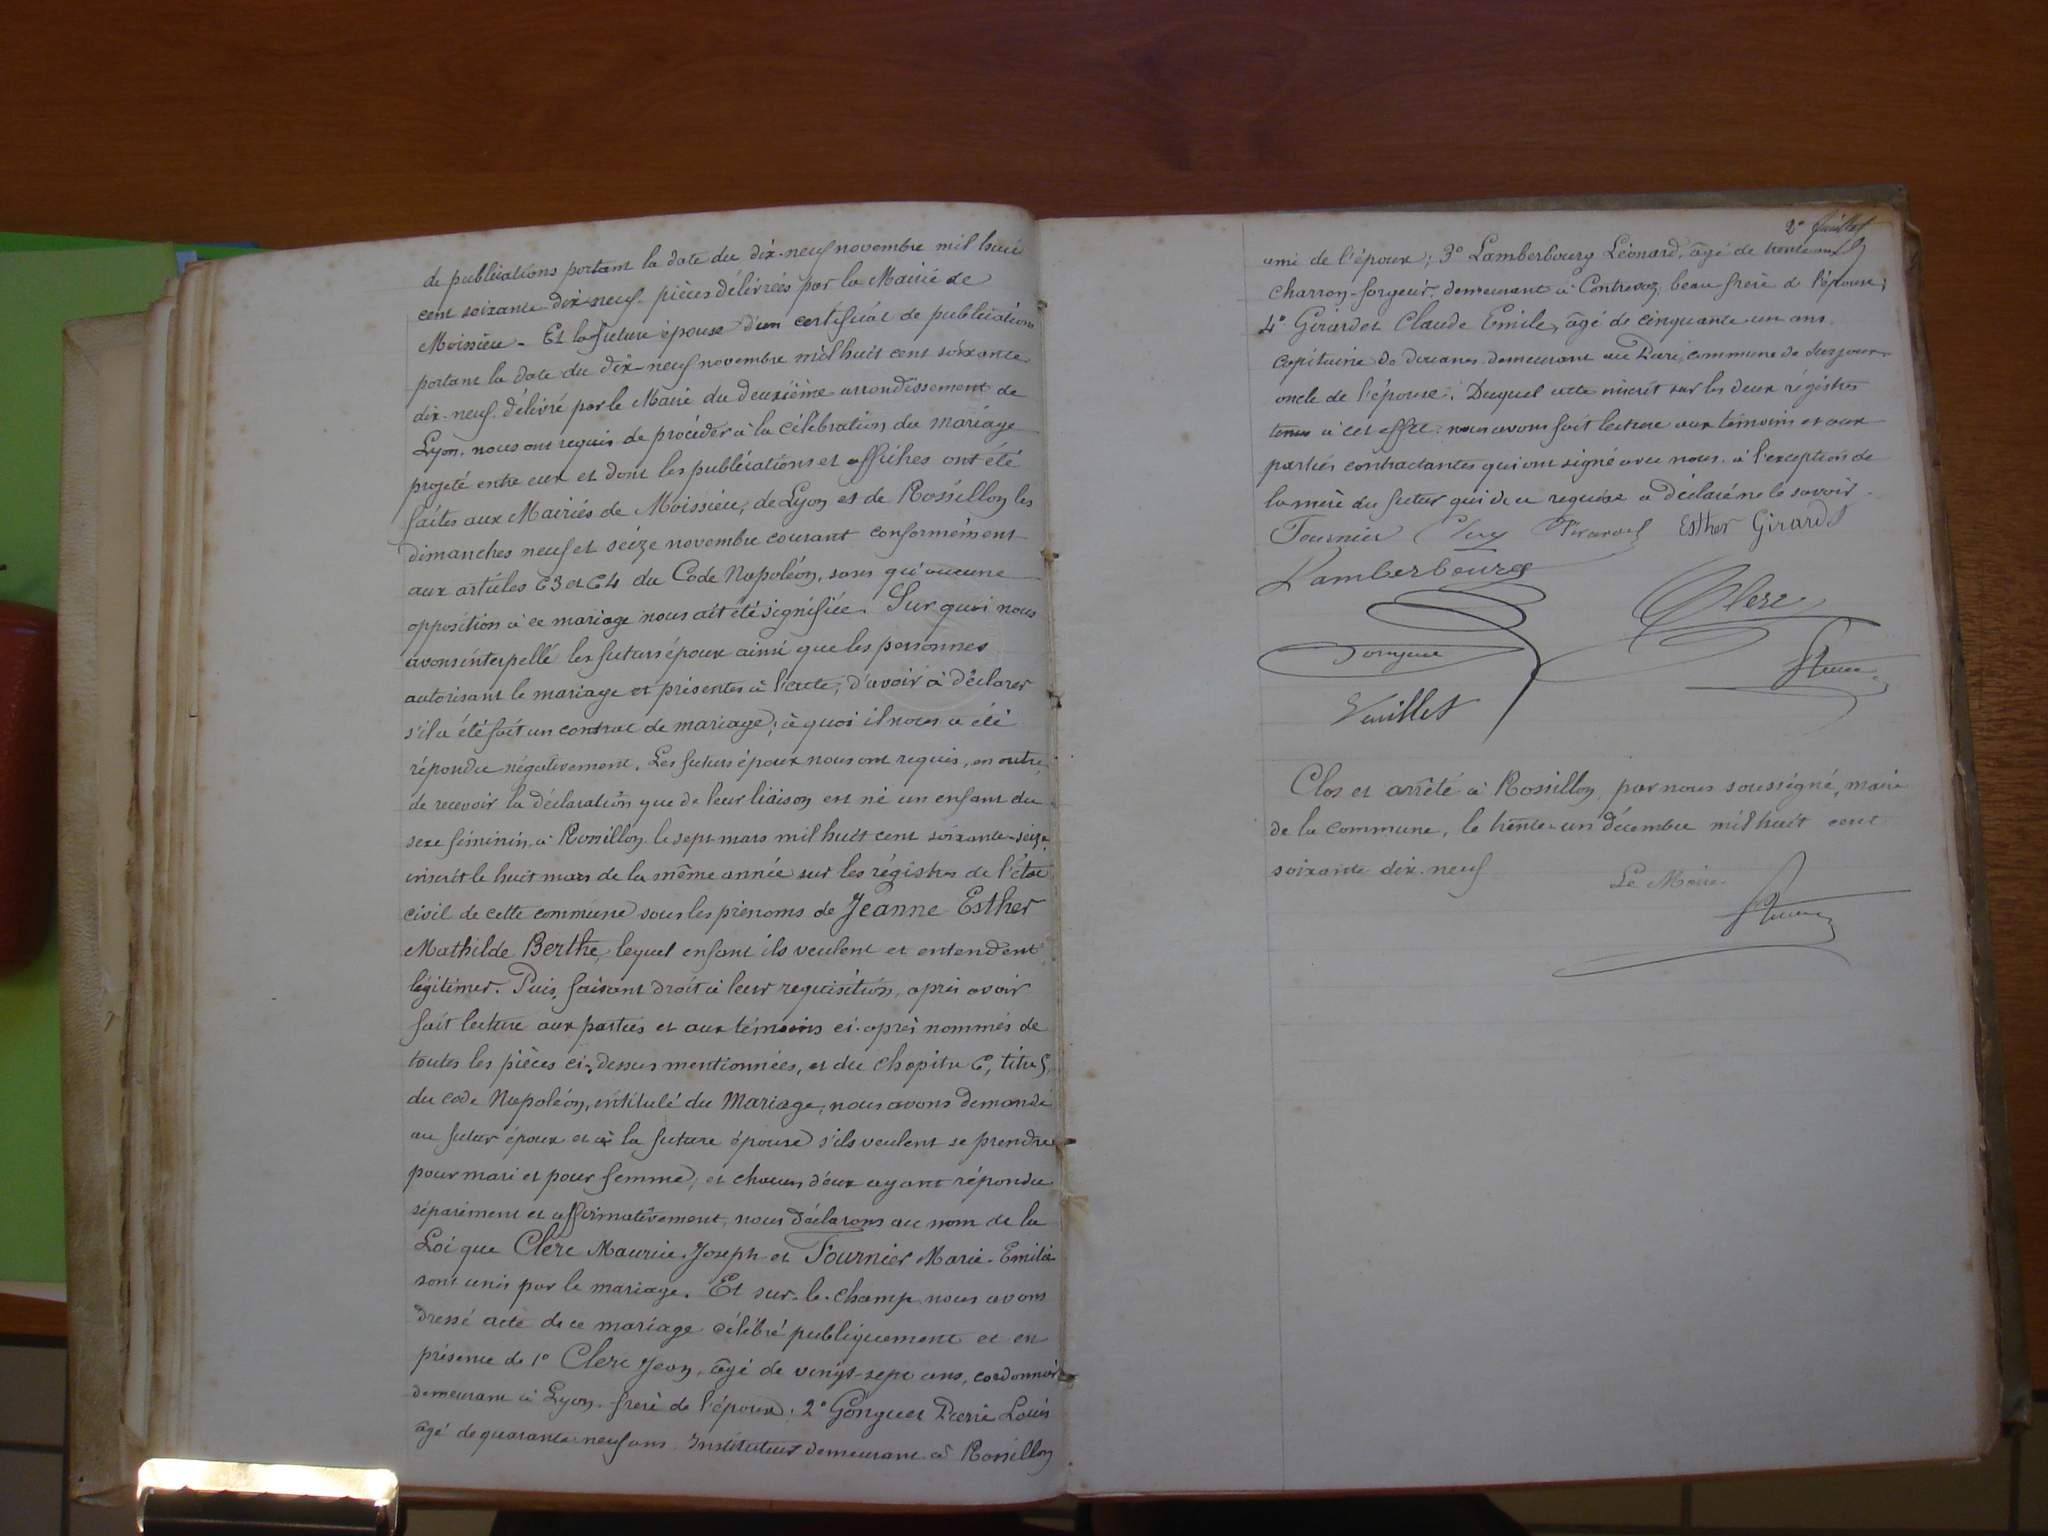 de publications portant la date du dix-neuf novembre mil huit
cent soixante dix-neuf. pièces délivrées par la Mairie de
Moissieu - Et la future épouse d'un certificat de publications
portant la date du dix-neuf novembre mil huit cent soixante
dix-neuf. délivré par le Maire du deuxième arrondissement de
Lyon. nous ont requis de procéder à la célébration du mariage
projeté entre eux et dont les publications et affiches ont été
faites aux Mairies de Moissieu, de Lyon et de Rossillon les
dimanches neuf et seize novembre courant conformément
aux articles 63 et 64 du Code Napoléon, sans qu'aucune
opposition à ce mariage nous ait été signifiée. Sur quoi nous
avons interpellé les futurs époux ainsi que les personnes
autorisant le mariage et présentes à l'acte, d'avoir à déclarer
s'il a été fait un contrat de mariage; à quoi il nous a été
répondu négativement. Les futurs époux nous ont requis, en outre,
de recevoir la déclaration que de leur liaison est né un enfant du
sexe féminin, à Rossillon le sept mars mil huit cent soixante-seize,
inscrit le huit mars de la même année sur les régistres de l'état
civil de cette commune sous les prénoms de Jeanne Esther
Mathilde Berthe, lequel enfant ils veulent et entendent
légitimer. Puis, faisant droit à leur requisition, après avoir
fait lecture aux parties et aux témoins ci-après nommés de
toutes les pièces ci-dessus mentionnées, et du chapitre 6, titre 5,
du code Napoléon, intitulé du Mariage, nous avons demandé
au futur époux et à la future épouse s'ils veulent se prendre
pour mari et pour femme, et chacun d'eux ayant répondu
séparément et affirmativement, nous déclarons au nom de la
Loi que Clerc Maurice Joseph et Fournier Marie-Emilie
sont unis par le mariage. Et sur-le-champ nous avons
dressé acte de ce mariage célébré publiquement et en
présence de 1° Clerc Jean, âgé de vingt-sept ans, cordonnier
demeurant à Lyon, frère de l'époux; 2° Gonguet Pierre Louis
âgé de quarante-neuf ans. Instituteur demeurant à Rossillon
2e feuillet
ami de l'époux; 3° Lamberbourg Léonard, âgé de trente ans
charron-forgeur, demeurant à Contrevoz, beau frère de l'épouse;
4° Girardet Claude Emile, âgé de cinquante un ans
capitaine de douanes demeurant au Parc, commune de Surjoux
oncle de l'épouse. Duquel acte inscrit sur les deux régistres
tenus à cet effet nous avons fait lecture aux témoins et aux
parties contractantes qui ont signé avec nous. à l'exception de
la mère du futur qui de ce requise a déclaré ne le savoir.
Fournier Esther Girardet
Lamberbourg
Clerc
Vuillet
Clos et arrêté à Rossillon, par nous soussigné, maire
de la commune, le trente-un décembre mil huit cent
soixante dix-neuf
Le Maire